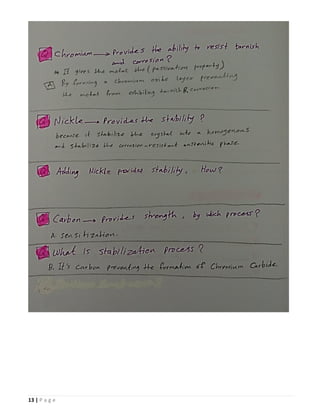 Chromium → Provides the ability to resist tarnish
and corrosion?
It gives the metal the (passivation property)
By forming a chromium oxide layer preventing
the metal from exhibiting tarnish & corrosion
Nickle → Provides the stability?
because it stabilize the crystal into a homogenous
and stabilize the corrosion-resistant austenitic phase.
Adding Nickle provides stability, How?
Carbon → Provides strength, by which process?
A. Sensitization.
What is stabilization process?
B. It's Carbon preventing the formation of Chromium Carbide.
13 | Page